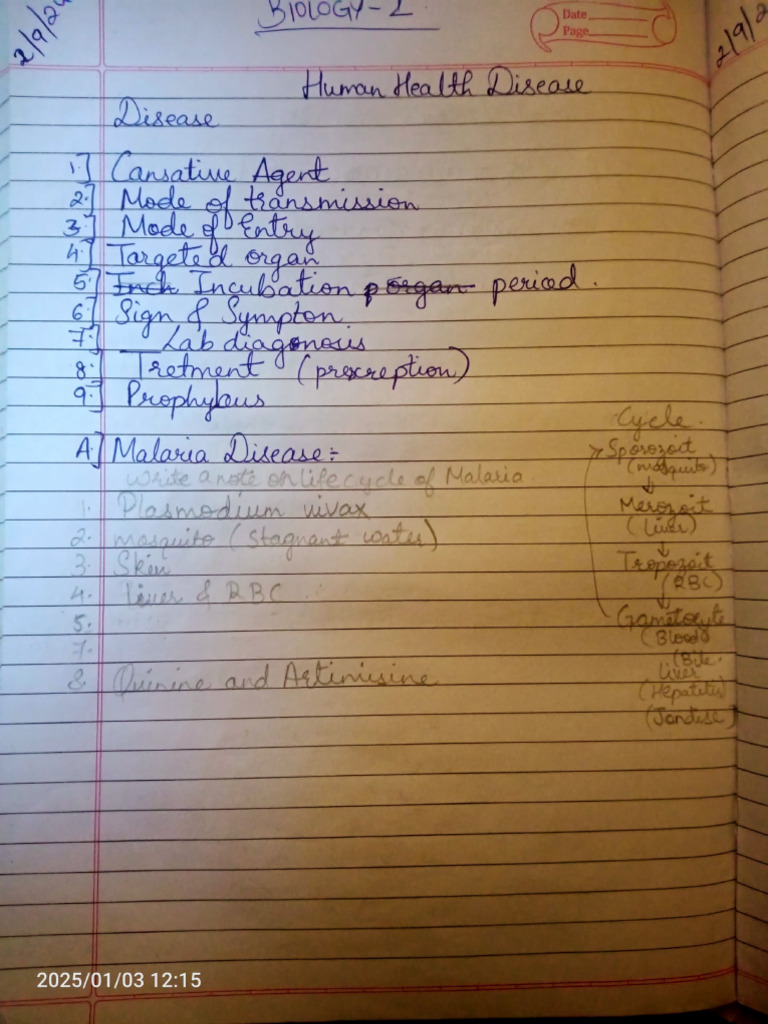 2/9/24
BIOLOGY-2
Date
Page
2/9/2
Human Health Disease
Disease
1.] Cansative Agent
2.] Mode of transmission
3.] Mode of Entry
4.] Targeted organ
5.] Inch Incubation p organ period.
6.] Sign & Sympton
7.] Lab diagonosis
8.] Tretment (prexcreption)
9.] Prophylaus
A.] Malaria Disease:-
write a note on life cycle of Malaria
1. Plasmodium vivax
2. mosquito (Stagnant water)
3. Skin
4. liver & RBC
5.
7.
8. Quinine and Artimisine
Cycle.
Sporozoit
(mosquito)
Merozoit
(Liver)
Tropozoit
(RBC)
Gametocyte
(Blood)
(Bile.
liver
(Hepatitis)
(Jandise)
2025/01/03 12:15